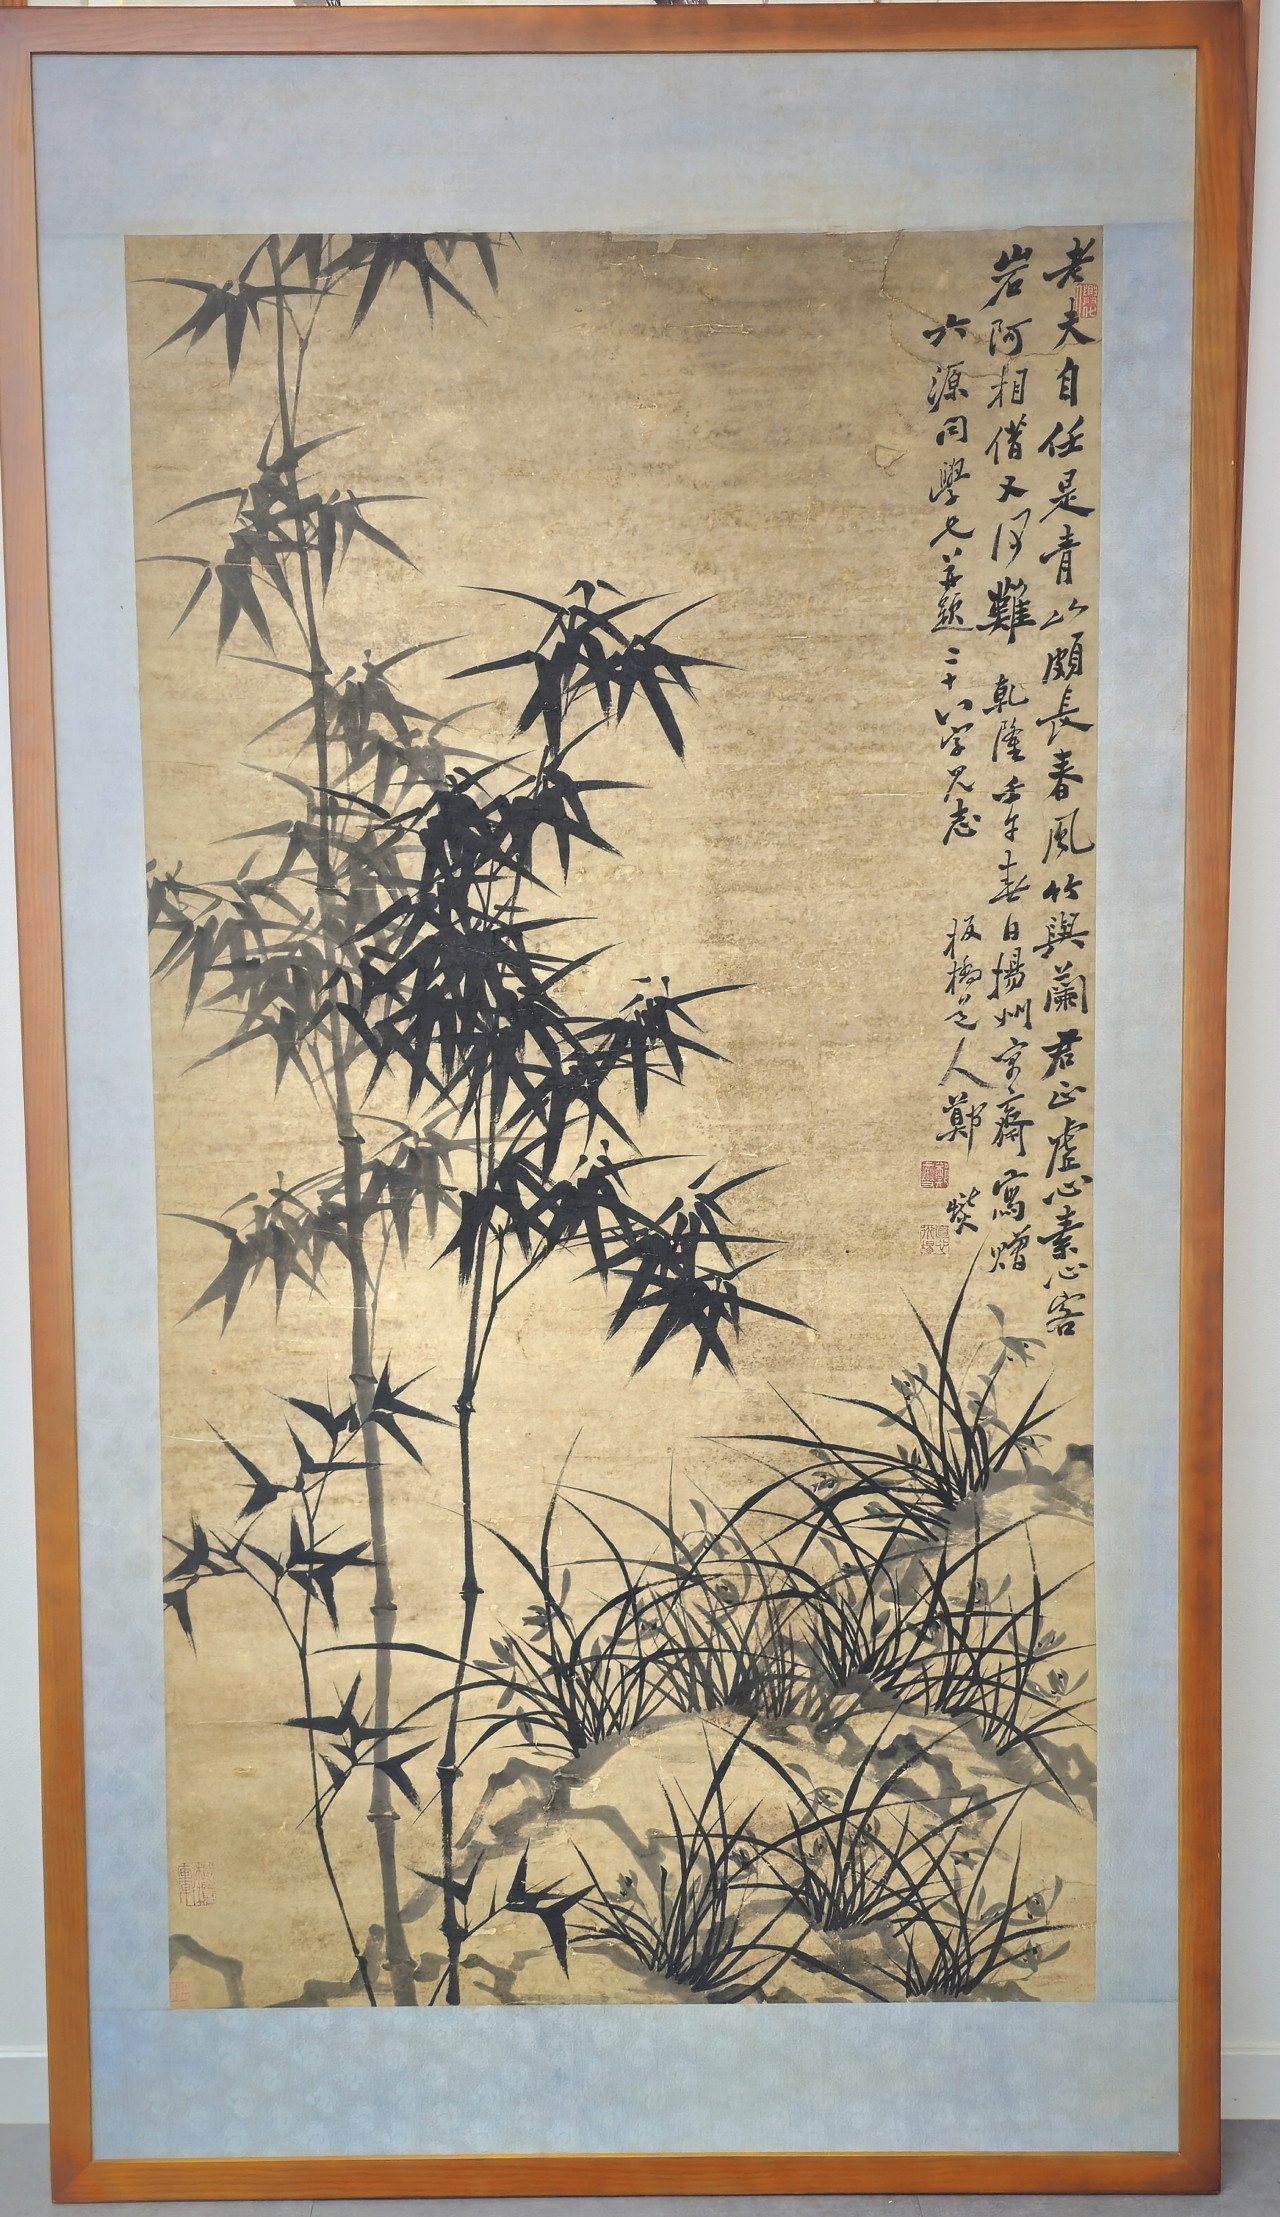 老夫自任是青山頗長春風竹與蘭君正虛心素心客
岩阿相借又何難 乾隆壬午春日揚州寓齋寫贈
六源同學兄并題二十八字見志
板橋道人鄭燮